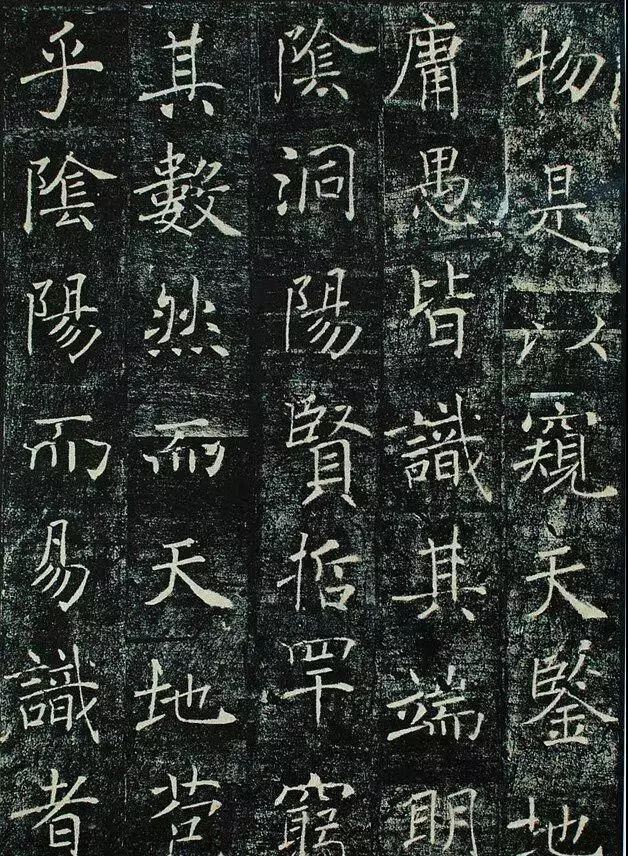 物是以窺天鑒地
庸愚皆識其端明
陰洞陽賢哲罕窮
其數然而天地苞
乎陰陽而易識者